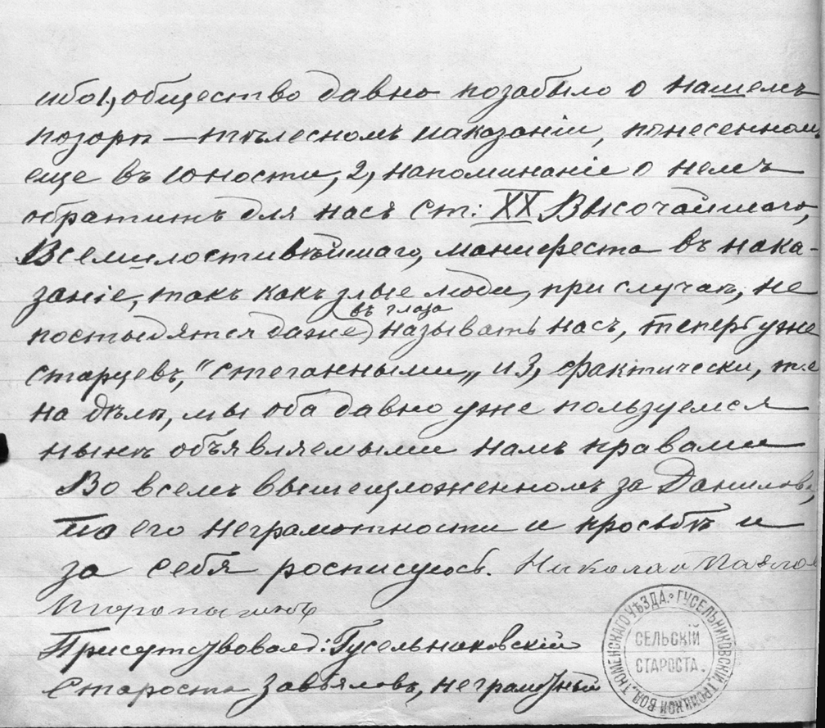 ибо 1, общество давно позабыло о нашемъ
позорѣ — тѣлесномъ наказаніи, понесенномъ
еще въ юности, 2, напоминаніе о немъ
обратитъ для насъ ст: XX Высочайшаго,
Всемилостивѣйшаго, манифеста въ нака-
заніе, такъ какъ злые люди, при случаѣ, не
въ глаза
постыдятся даже называть насъ, теперь уже
старцевъ, "стеганными„ и 3, фактически, т.е
на дѣлѣ, мы оба давно уже пользуемся
нынѣ объявляемыми намъ правами
Во всемъ вышеизложенномъ за Данилова,
по его неграмотности и просьбѣ и
за себя росписуюсь. Николай
Присутствовалъ: Гусельниковскій
Староста Завьяловъ, неграмотный
ГУСЕЛЬНИКОВСКІЙ, ТРОИЦКОЙ ВОЛ. ТЮМЕНСКАГО УѢЗДА.
СЕЛЬСКІЙ
СТАРОСТА.